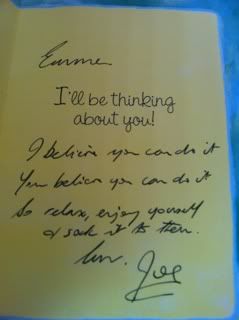 I'll be thinking
about you!
I believe you can do it
You believe you can do it
So relax, enjoy yourself
& sock it to them.
luv.